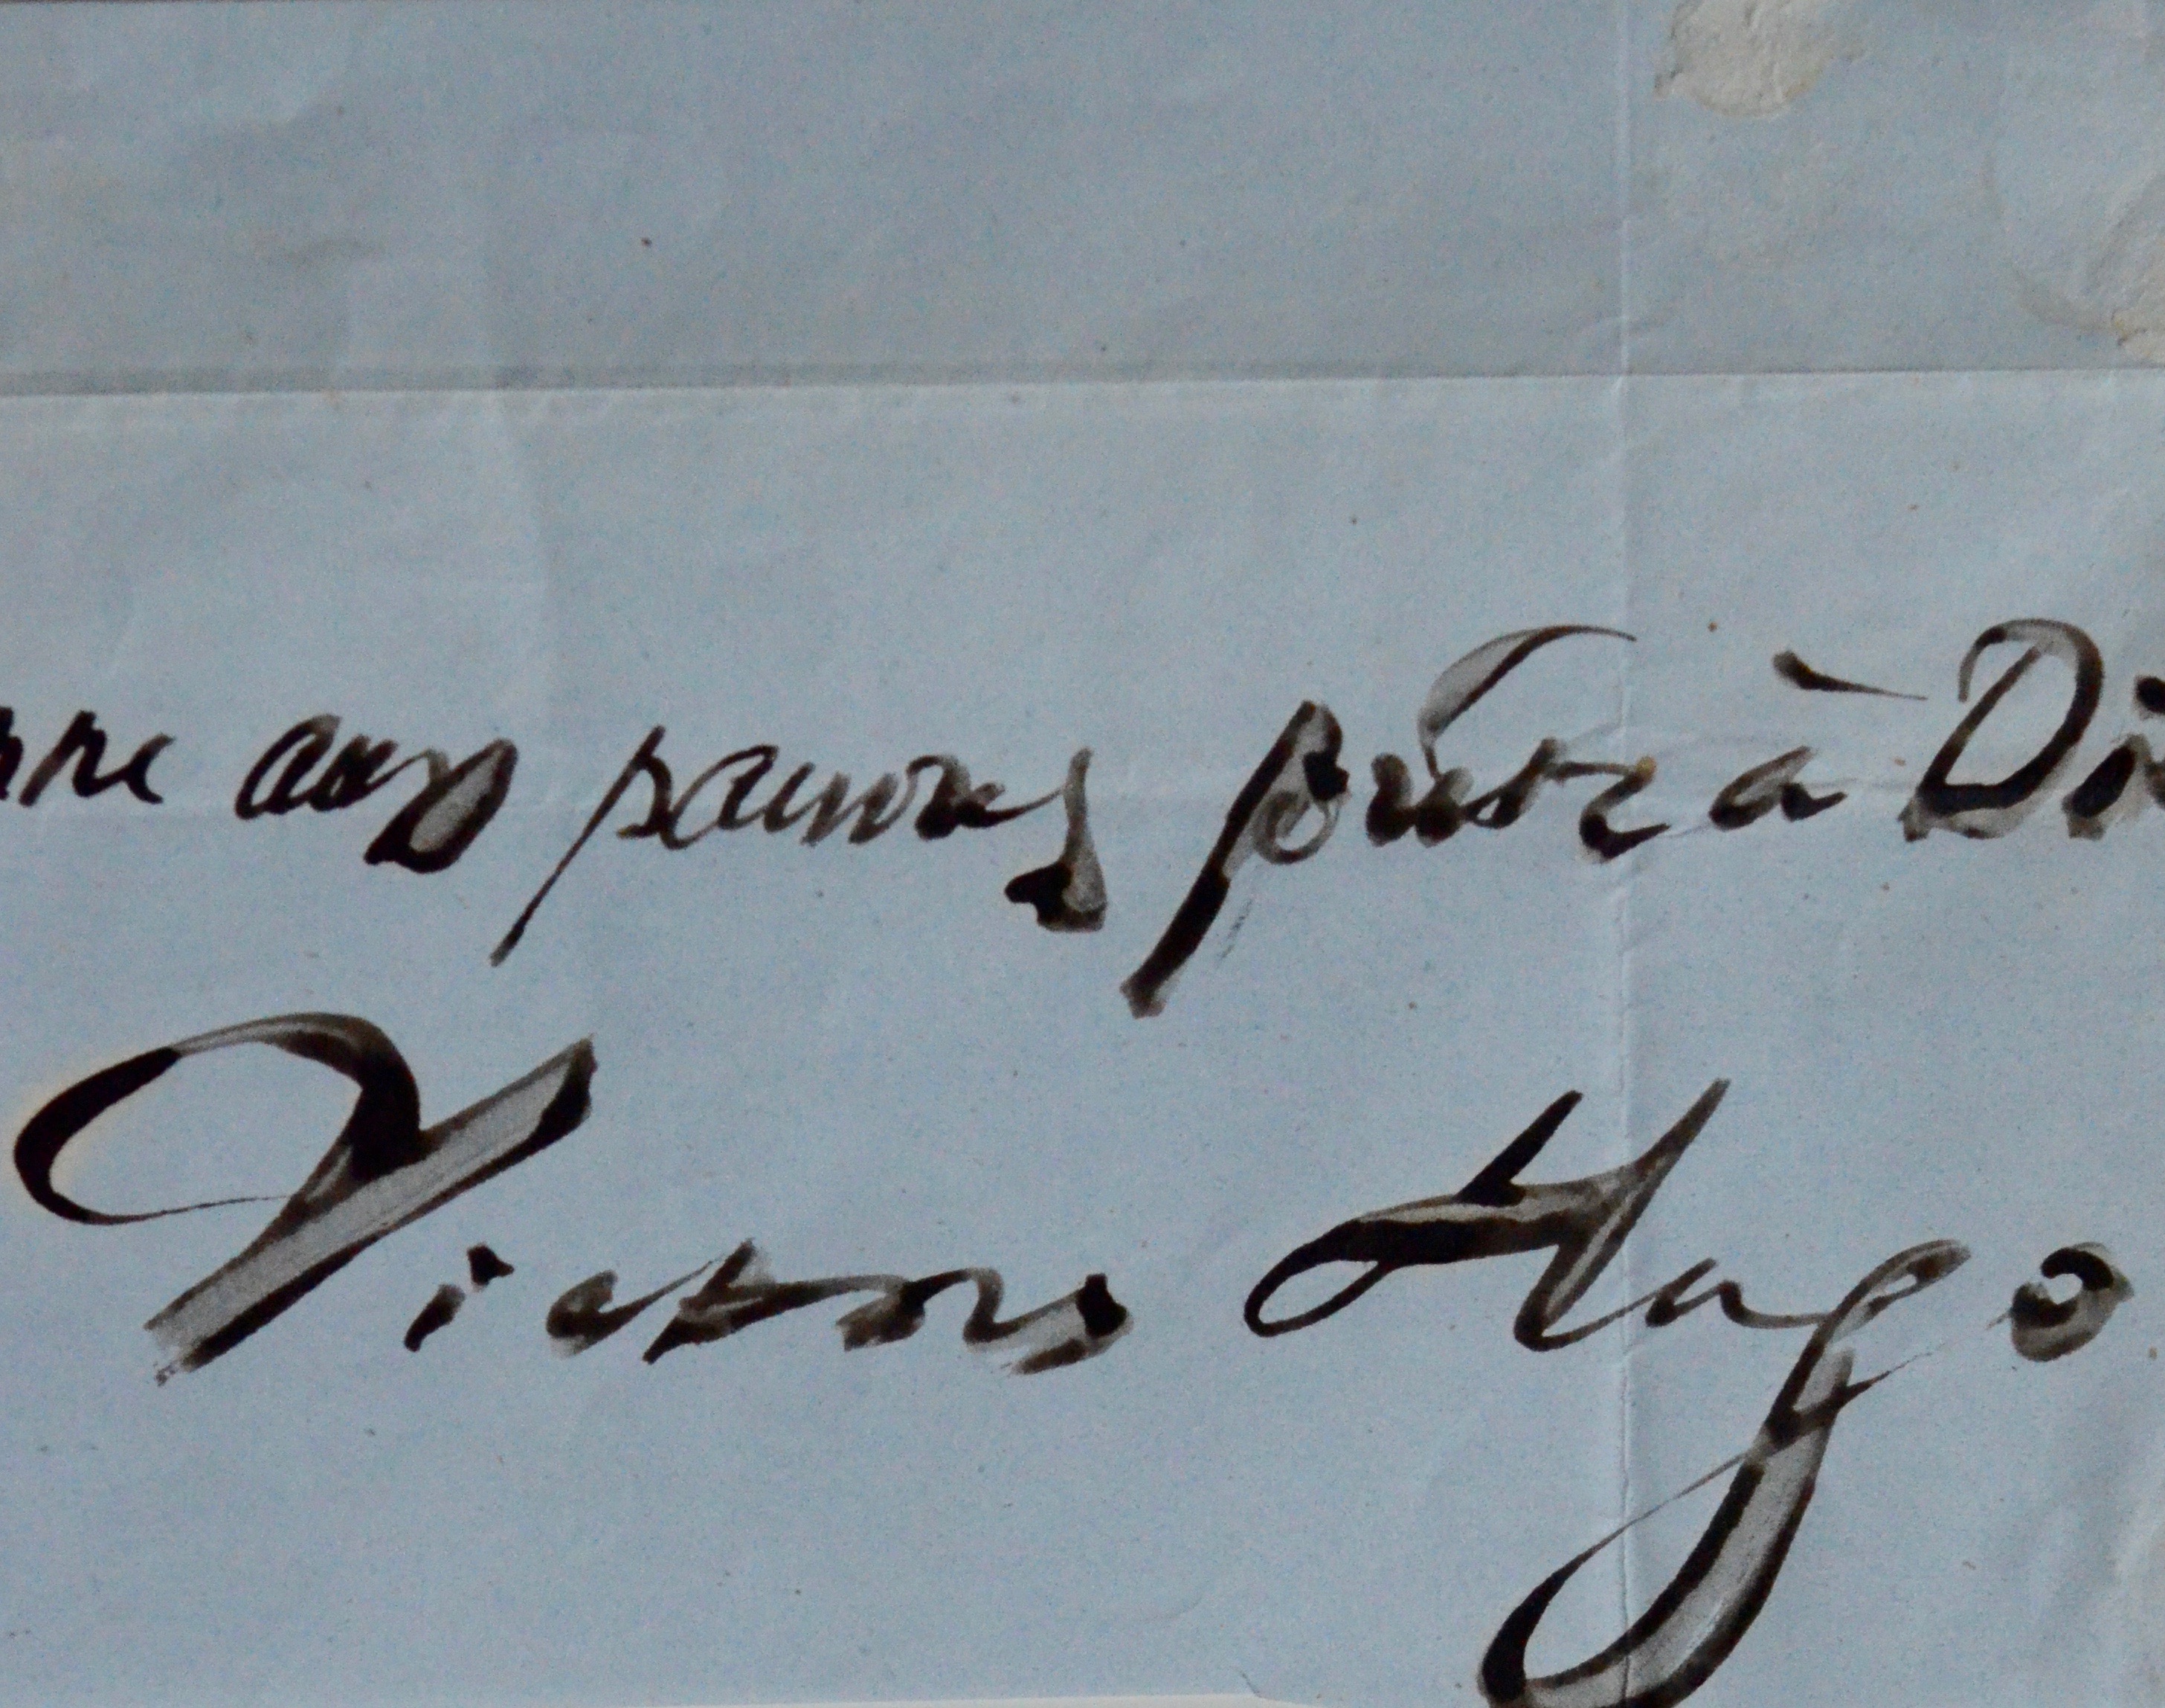 nne aux pauvres prête à Di
Victor Hugo